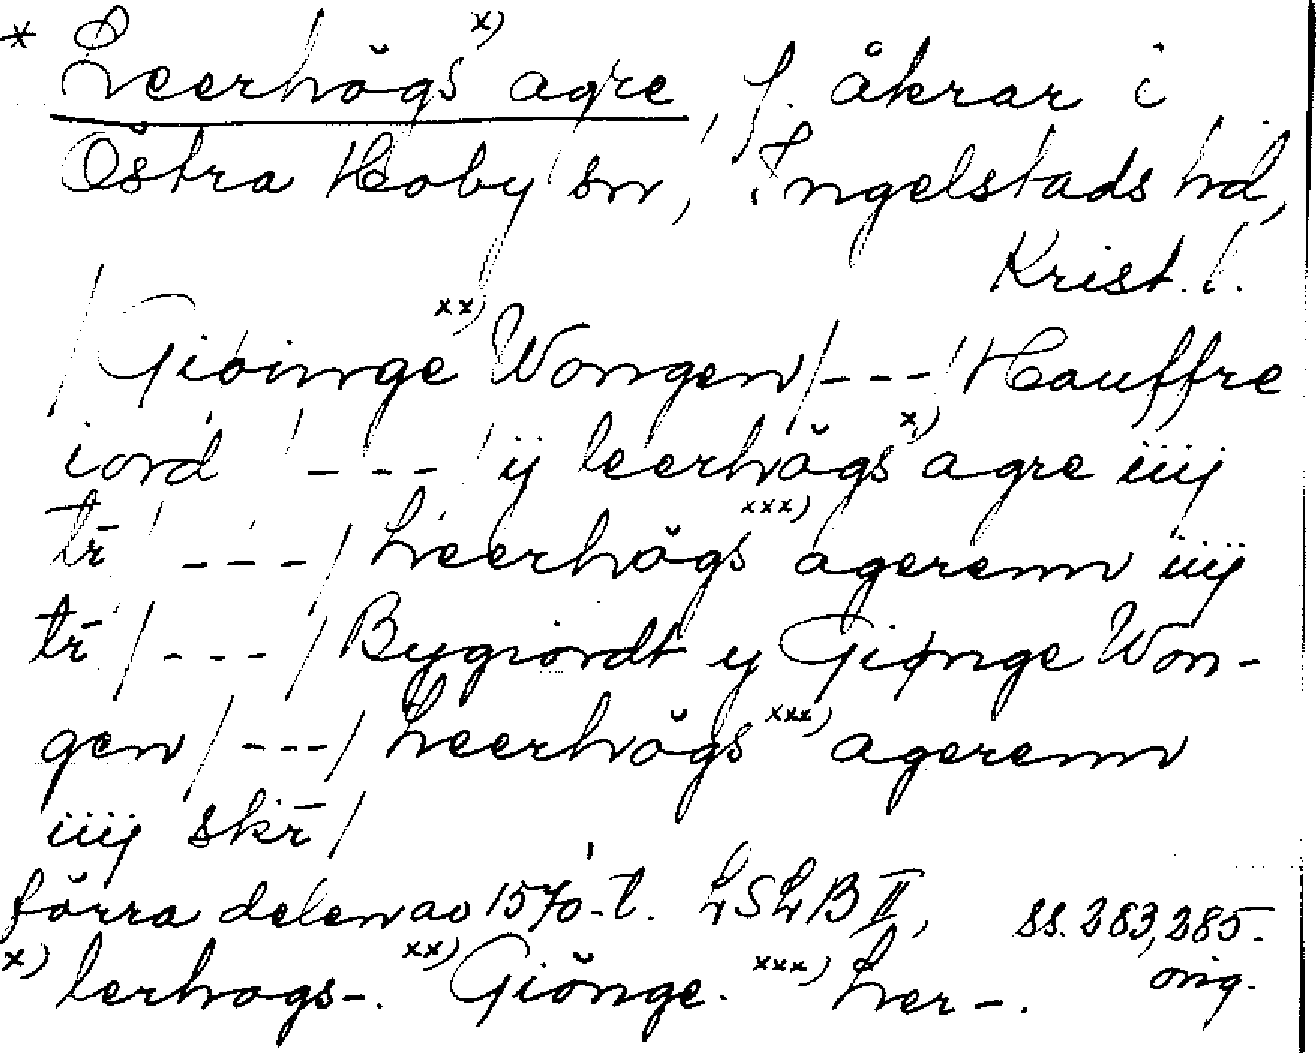 * Leerhögs x) agre, f. åkrar i
Östra Hoby sn, Ingelstads hd,
Krist. l.
/ Giöinge xx) Wongen / --- / Hauffre
iord / --- / ij leerhögs x) agre iiij
tr̄ / --- / Leerhögs xxx) agerenn iiij
tr̄ / --- / Bygiordt ij Giönge Won-
gen / --- / Leerhögs xxx) agerenn
iiij skr̄ /
förra delen av 1570-t. LSLB II, ss. 283, 285.
orig.
x) lerhogs-. xx) Giönge. xxx) Ler-.